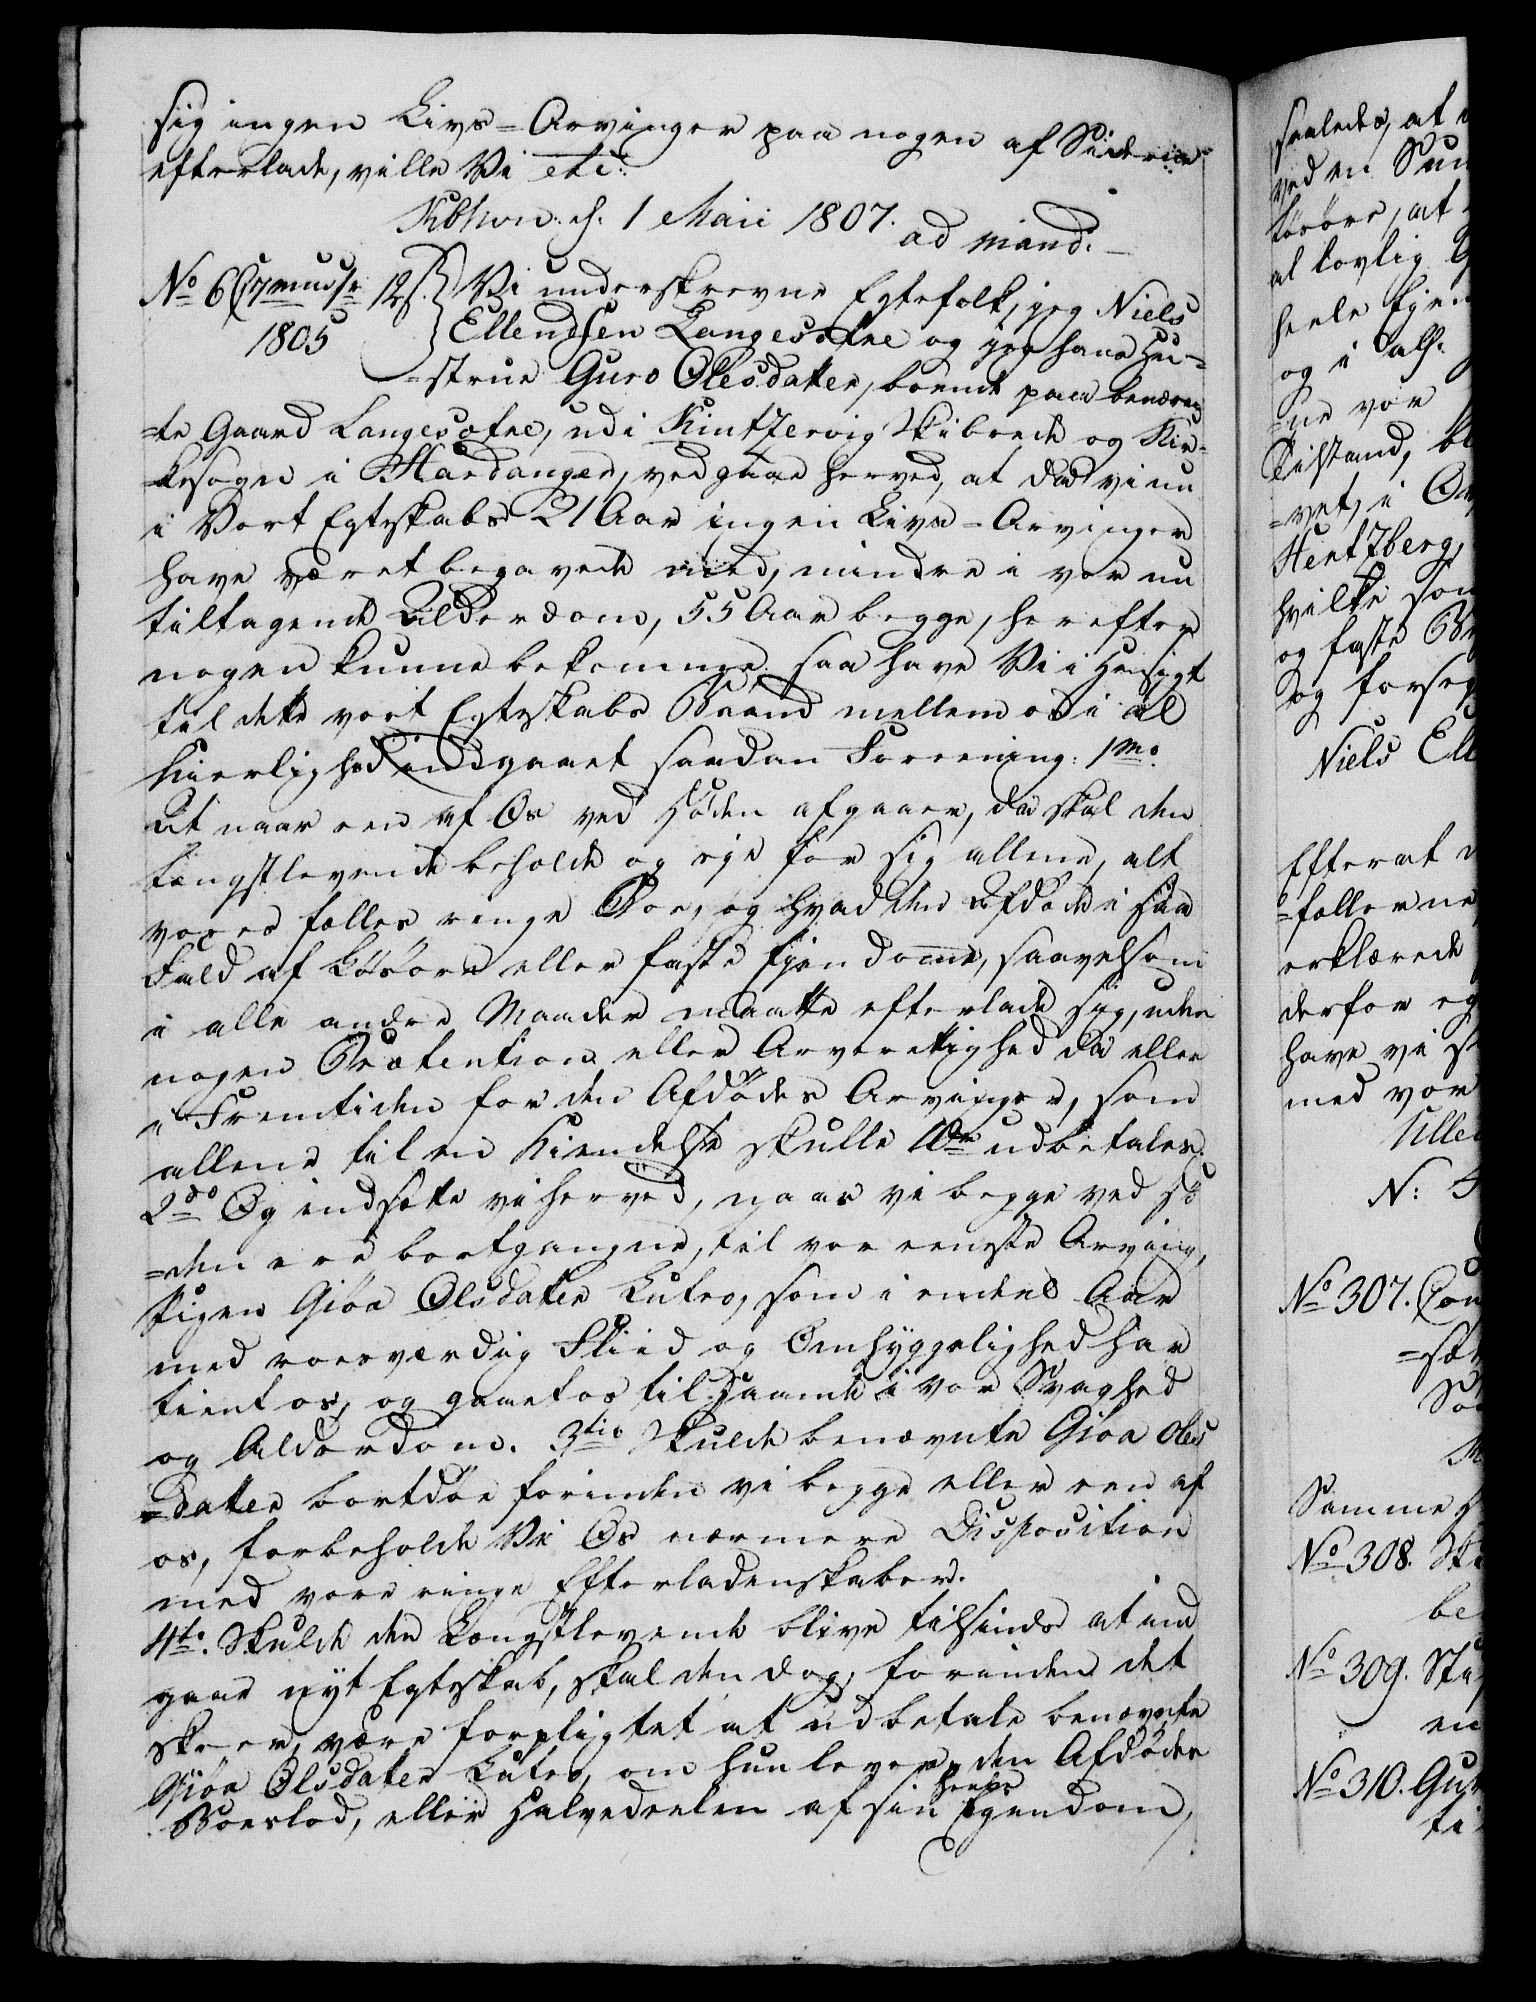 sig ingen Livs=Arvinger paa nogen af Siderne
efterlade, ville Vi etc:
Kbhvn. d. 1 Maii 1807. ad mand.
No 6 12 s. Vi underskrevne Egtefolk, jeg Niels
1805 Ellendsen Langesæter og jeg hans Hu=
=strue Guro Olesdatter, boende paa benævn
=te Gaard Langesæter, udi Kintzervig Skibrede og Kir=
kesogn i Hardanger, vedgaae herved, at da vi nu
i Vort Egteskabs 21 Aar ingen Livs=Arvinger
have været begavede med, mindre i vor nu
tiltagende Alderdom, 55 Aar begge, herefter
nogen kunne bekomme, saa have Vi i Hensigt
til dette vort Egteskabs Baand mellem os i al
Kierlighed indgaaet saadan Foreening: 1mo
At naar een af Os ved Døden afgaaer, da skal den
længstlevende beholde og eje for sig allene, alt
vores fælles ringe Boe, og hvad den Afdøde i saa
Fald af Løsøre eller faste Ejendomme, saavelsom
i alle andre Maader maatte efterlade sig, uden
nogen Prætention eller Arverettighed da eller
i Fremtiden for den Afdødes Arvinger, som
allene til en Kiendelse skulle udbetales.
2do Og indsætte vi herved, naar vi begge ved Dø
=den ere bortgangne, til vor eeneste Arving,
Pigen Giøa Olsdatter Lutro, som i Aar
med roesværdig Fliid og Omhyggelighed har
tient os, og gaaet os til Haande i vor Svaghed
og Alderdom. 3tio Skulde benævnte Giøa Ols
=datter bortdøe forinden vi begge eller een af
os, forbeholde Vi Os nærmere Disposition
med vore ringe Efterladenskaber.
4to. Skulde den Længstlevende blive tilsinds at ind
gaae nyt Egteskab, skal den dog, forinden det
skeer, være forpligtet at udbetale benævnte
Giøa Olsdatter Lutro, om hun lever, den Afdødes
Boeslod, eller Halvedeelen af sin heele Ejendom,
saaledes, at
ved en
Løsøre, at
al lovlig
heele Ejen
og i alf.
=ne vor
Tilstand,
=vet, i
Hentzberg,
hvilke som
og faste
og forseg
Niels Ell
Efterat
=følle
erklærede
derfor eg
have vi
med vor
Ullen
N:
No 307. Con
Samme
No 308.
be
No 309. Sta
en
No 310. Gu
ti